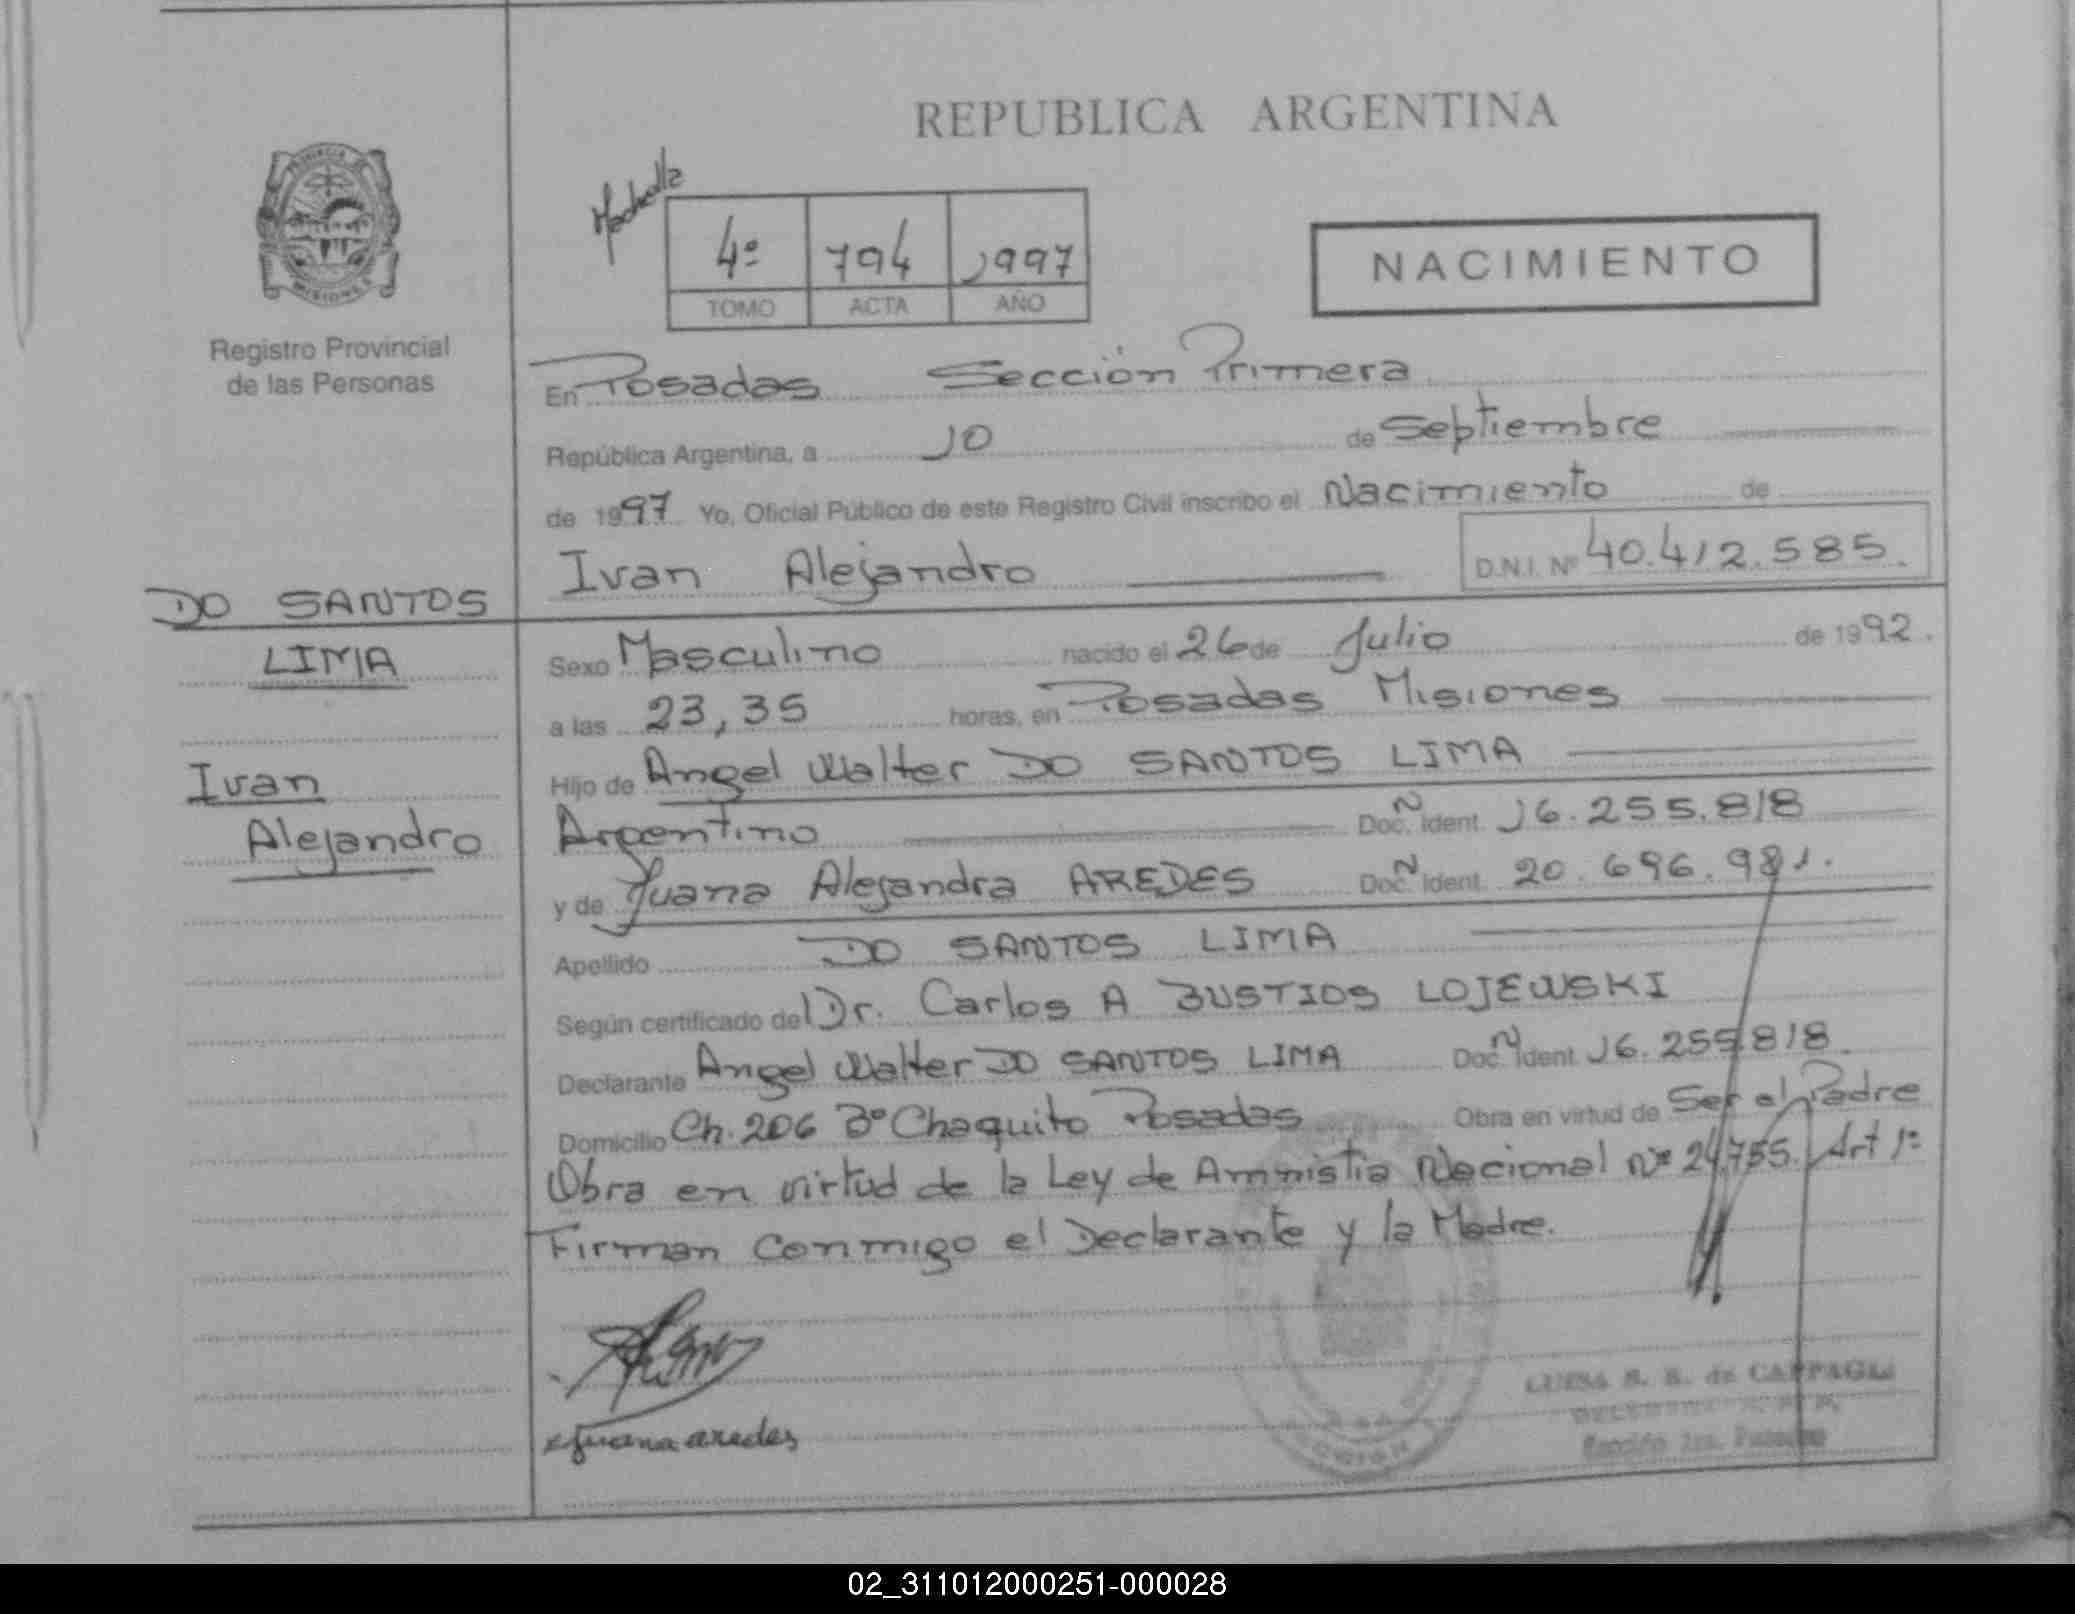 REPUBLICA ARGENTINA
PROVINCIA DE
MISIONES
Registro Provincial
de las Personas
4º 794 1997
TOMO ACTA AÑO
NACIMIENTO
En Posadas Sección Primera
República Argentina, a 10 de Septiembre
de 1997 Yo, Oficial Público de este Registro Civil inscribo el Nacimiento de
Ivan Alejandro D.N.I. Nº 40.412.585.
DO SANTOS
LIMA
Ivan
Alejandro
Sexo Masculino nacido el 26 de Julio de 1992.
a las 23,35 horas, en Posadas Misiones
Hijo de Angel Walter DO SANTOS LIMA
Argentino Doc. Ñ Ident. 16.255.818
y de Juana Alejandra AREDES Doc. Ñ Ident. 20.696.981.
Apellido DO SANTOS LIMA
Según certificado del Dr. Carlos A BUSTIOS LOJEWSKI
Declarante Angel Walter DO SANTOS LIMA Doc. Ñ Ident. 16.255.818
Domicilio Ch. 206 Bº Chaquito Posadas Obra en virtud de Ser el Padre
Obra en virtud de la Ley de Amnistia Nacional Nº 24.755. Art 1º
Firman conmigo el Declarante y la Madre.
Juana aredes
LUISA S. de
Sección 1ra. Posadas
02_311012000251-000028